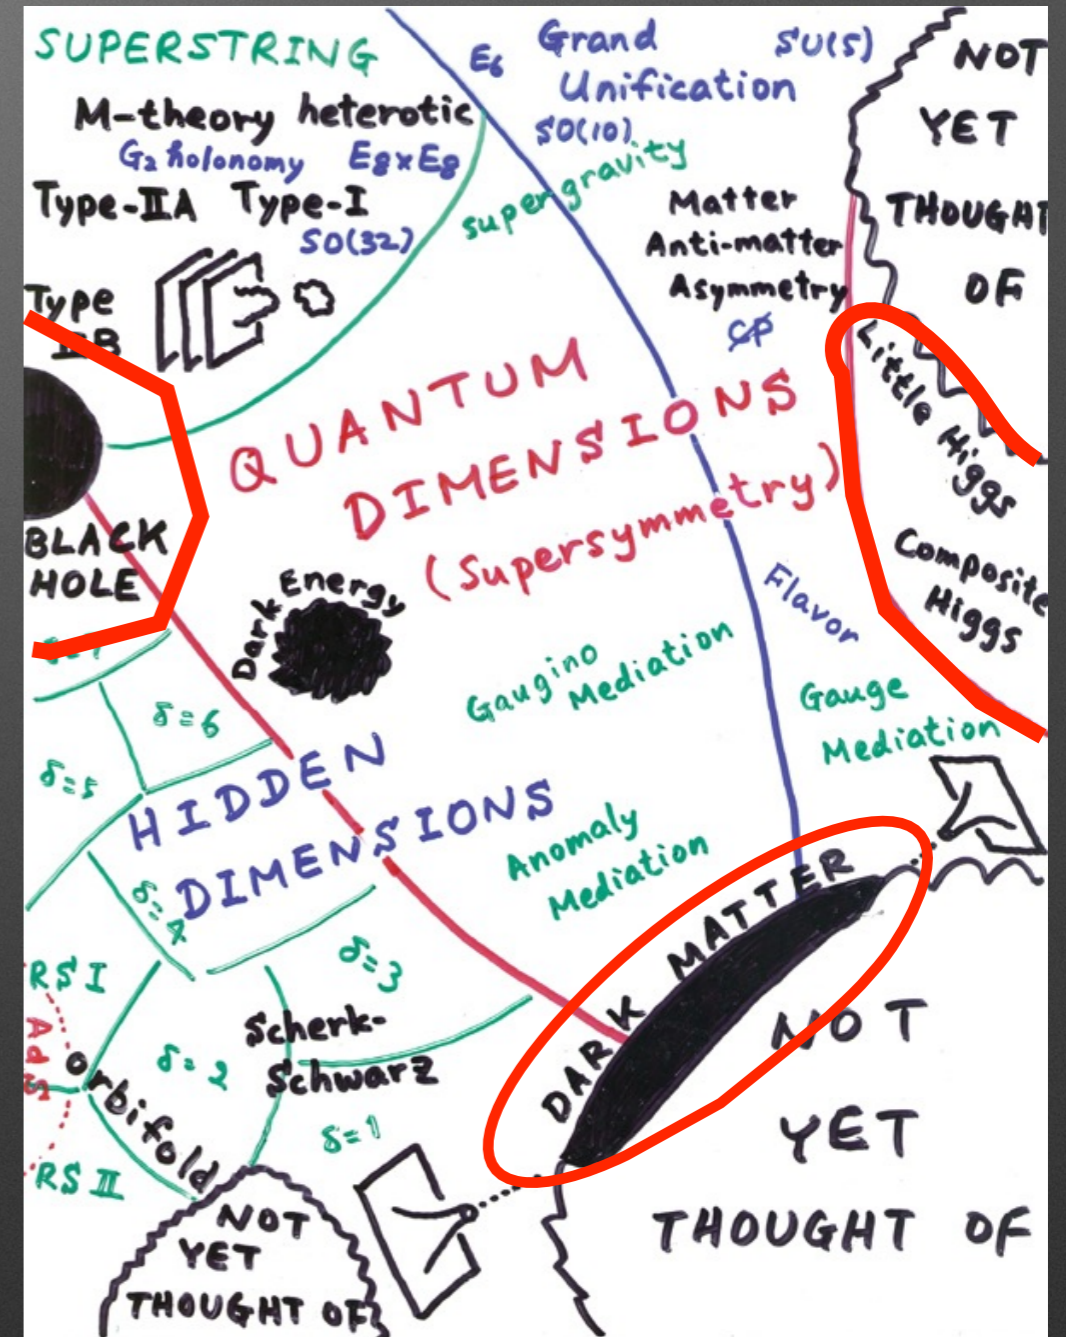 SUPERSTRING
M-theory heterotic
G₂ holonomy E₈×E₈
Type-IIA Type-I
SO(32)
Type
IIB
E₆
Grand
Unification
SU(5)
SO(10)
supergravity
Matter
Anti-matter
Asymmetry
CP
NOT
YET
THOUGHT
OF
Little Higgs
Composite
Higgs
QUANTUM
DIMENSIONS
(Supersymmetry)
BLACK
HOLE
Dark Energy
Flavor
Gaugino
Mediation
Gauge
Mediation
Anomaly
Mediation
HIDDEN
DIMENSIONS
δ=6
δ=5
δ=4
δ=3
δ=2
δ=1
RS I
AdS
RS II
orbifold
Scherk-
Schwarz
DARK MATTER
NOT
YET
THOUGHT OF
NOT
YET
THOUGHT OF